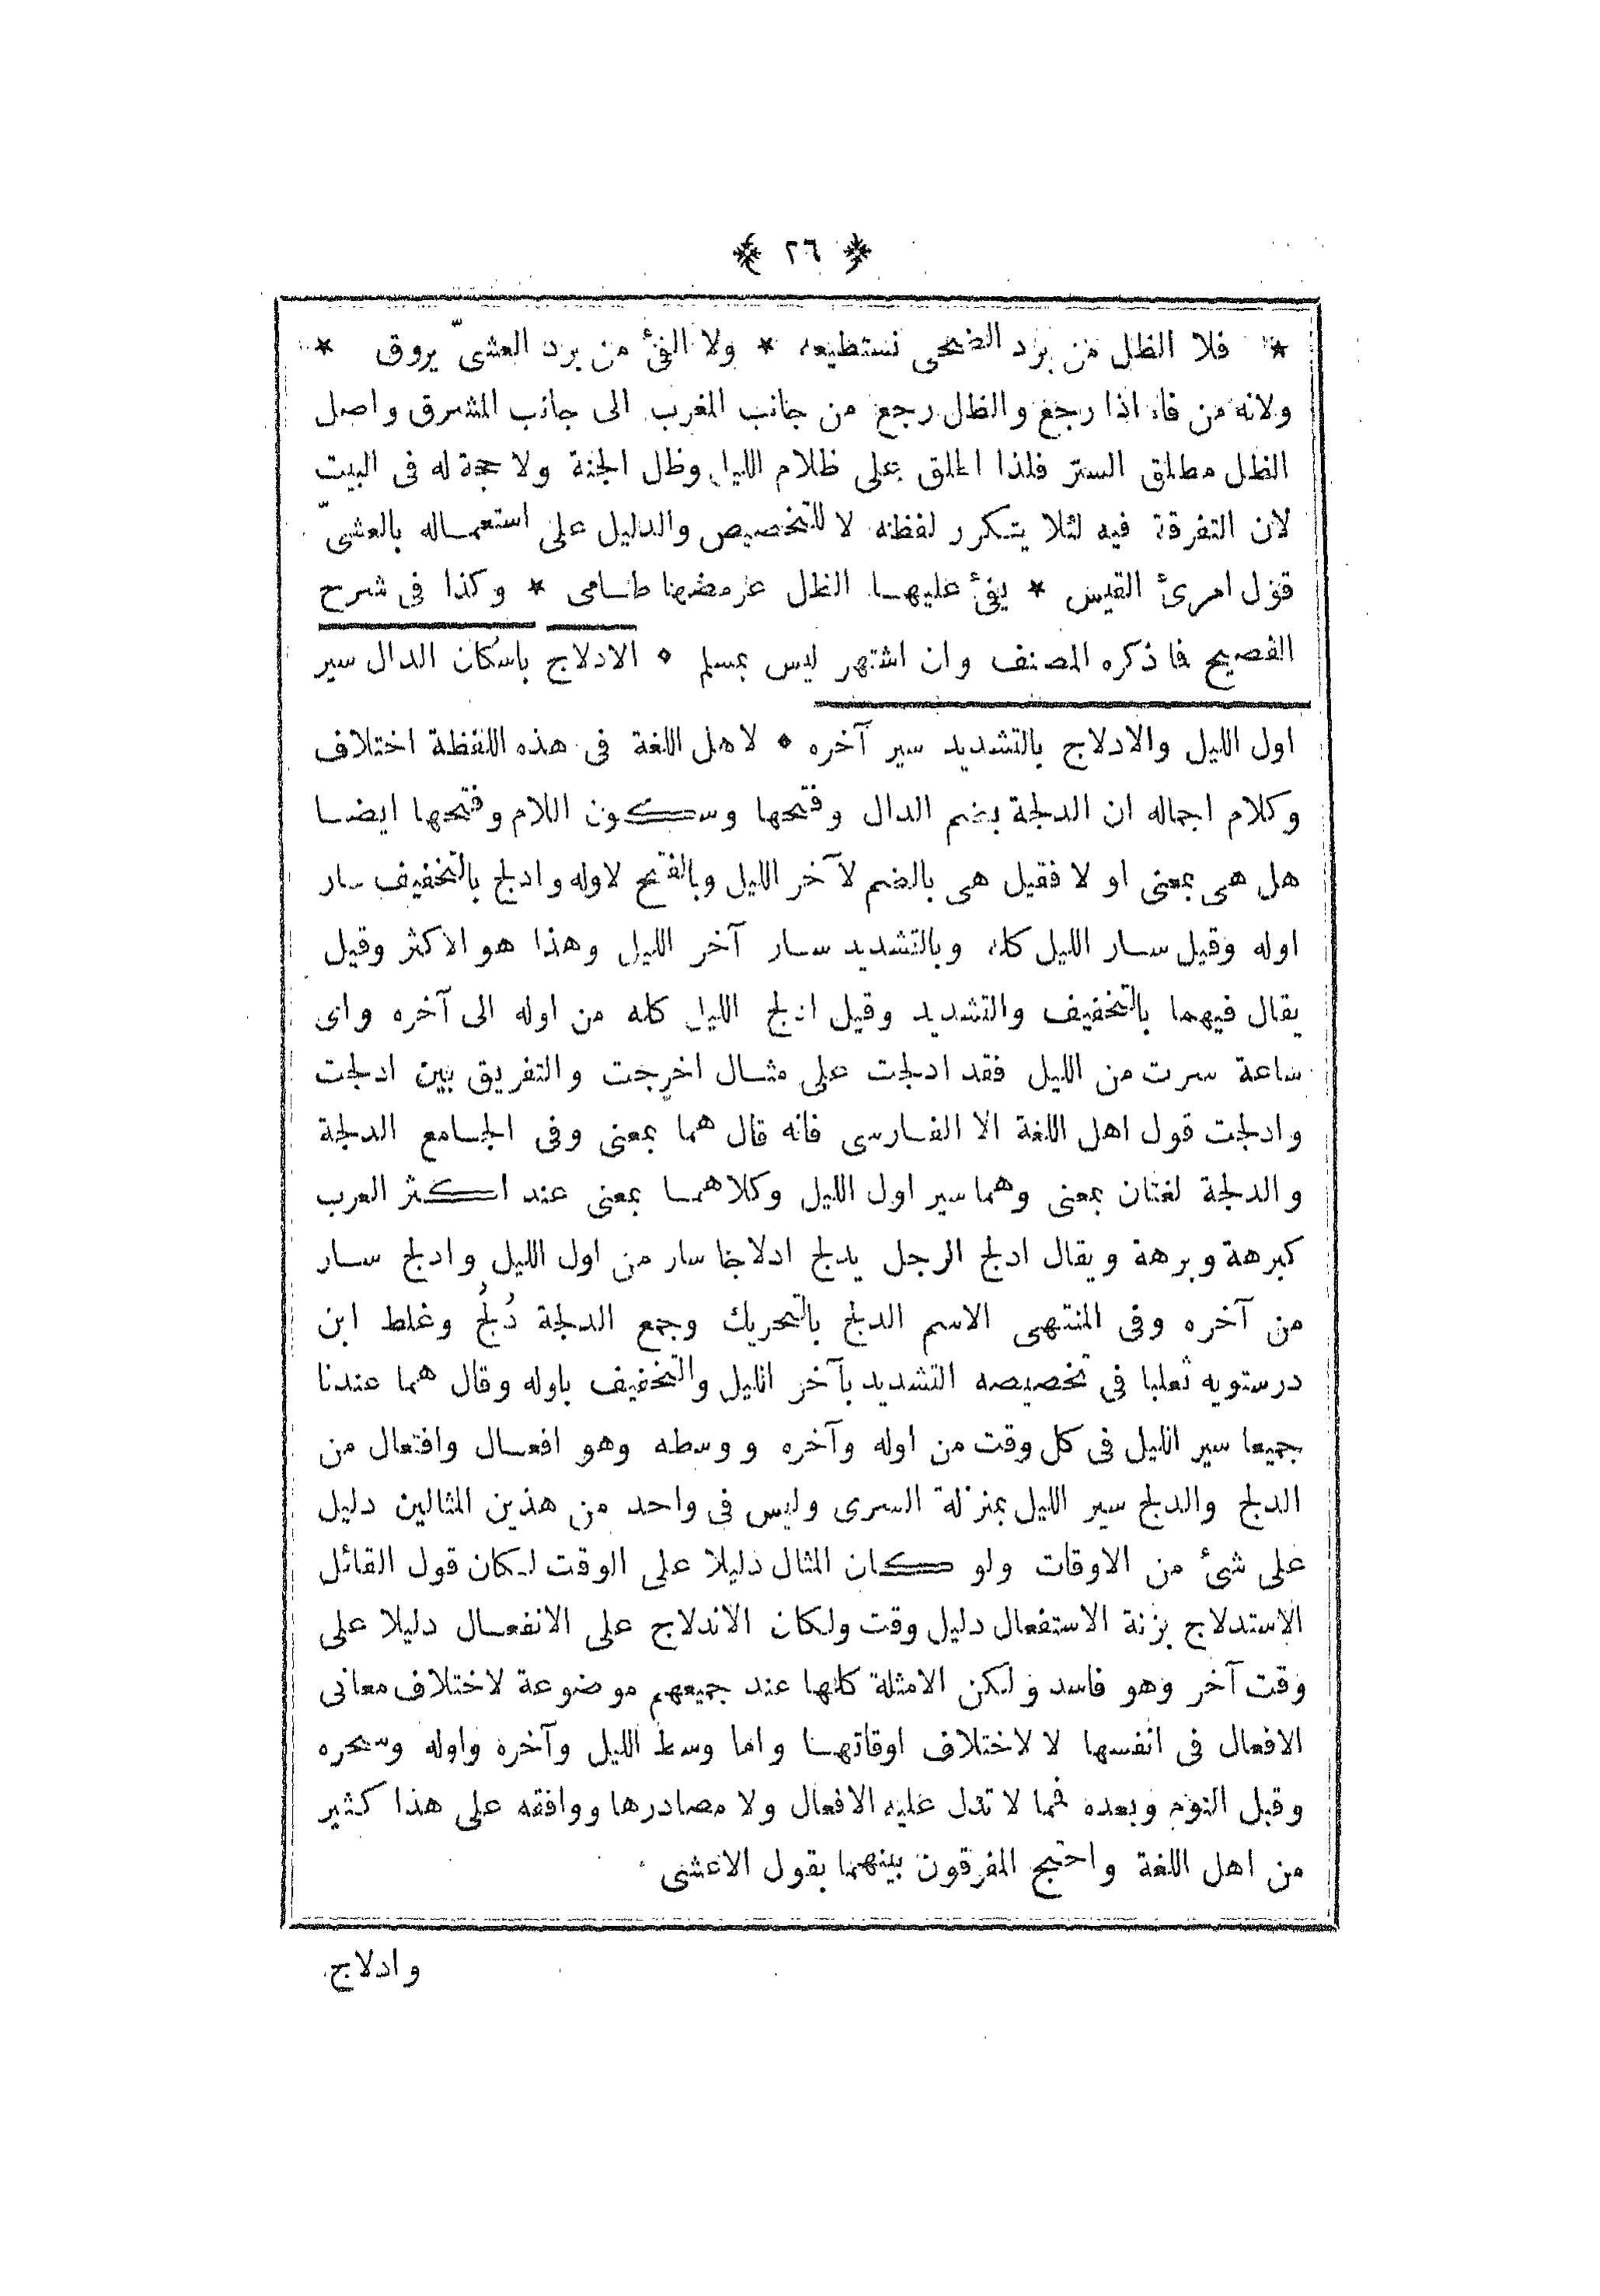 ﴿ ٢٦ ﴾
* فلا الظل من برد الضحى نستطيعه * ولا الفئ من برد العشىّ يروق *
ولانه من فاء اذا رجع والظل رجع من جانب المغرب الى جانب المشرق واصل
الظل مطلق الستر فلذا اطلق على ظلام الليل وظل الجنة ولا حجة له فى البيت
لان التفرقة فيه لئلا يتكرر لفظه لا للتخصيص والدليل على استعماله بالعشىّ
قول امرئ القيس * يفئ عليها الظل عرمضها طامى * وكذا فى شرح
الفصيح فما ذكره المصنف وان اشتهر ليس بمسلم ◦ الادلاج باسكان الدال سير
اول الليل والادلاج بالتشديد سير آخره ◦ لاهل اللغة فى هذه اللفظة اختلاف
وكلام اجماله ان الدلجة بضم الدال وفتحها وسكون اللام وفتحها ايضا
هل هى بمعنى او لا فقيل هى بالضم لآخر الليل وبالفتح لاوله وادلج بالتخفيف سار
اوله وقيل سار الليل كله وبالتشديد سار آخر الليل وهذا هو الاكثر وقيل
يقال فيهما بالتخفيف والتشديد وقيل ادلج الليل كله من اوله الى آخره واى
ساعة سرت من الليل فقد ادلجت على مثال اخرجت والتفريق بين ادلجت
وادلجت قول اهل اللغة الا الفارسى فانه قال هما بمعنى وفى الجامع الدلجة
والدلجة لغتان بمعنى وهما سير اول الليل وكلاهما بمعنى عند اكثر العرب
كبرهة وبرهة ويقال ادلج الرجل يدلج ادلاجا سار من اول الليل وادلج سار
من آخره وفى المنتهى الاسم الدلج بالتحريك وجمع الدلجة دُلَجُ وغلط ابن
درستويه ثعلبا فى تخصيصه التشديد بآخر الليل والتخفيف باوله وقال هما عندنا
جميعا سير الليل فى كل وقت من اوله وآخره ووسطه وهو افعال وافتعال من
الدلج والدلج سير الليل بمنزلة السرى وليس فى واحد من هذين المثالين دليل
على شئ من الاوقات ولو كان المثال دليلا على الوقت لكان قول القائل
الاستدلاج بزنة الاستفعال دليل وقت ولكان الاندلاج على الانفعال دليلا على
وقت آخر وهو فاسد ولكن الامثلة كلها عند جميعهم موضوعة لاختلاف معانى
الافعال فى انفسها لا لاختلاف اوقاتها واما وسط الليل وآخره واوله وسحره
وقبل النوم وبعده فمما لا تدل عليه الافعال ولا مصادرها ووافقه على هذا كثير
من اهل اللغة واحتج المفرقون بينهما بقول الاعشى
وادلاج